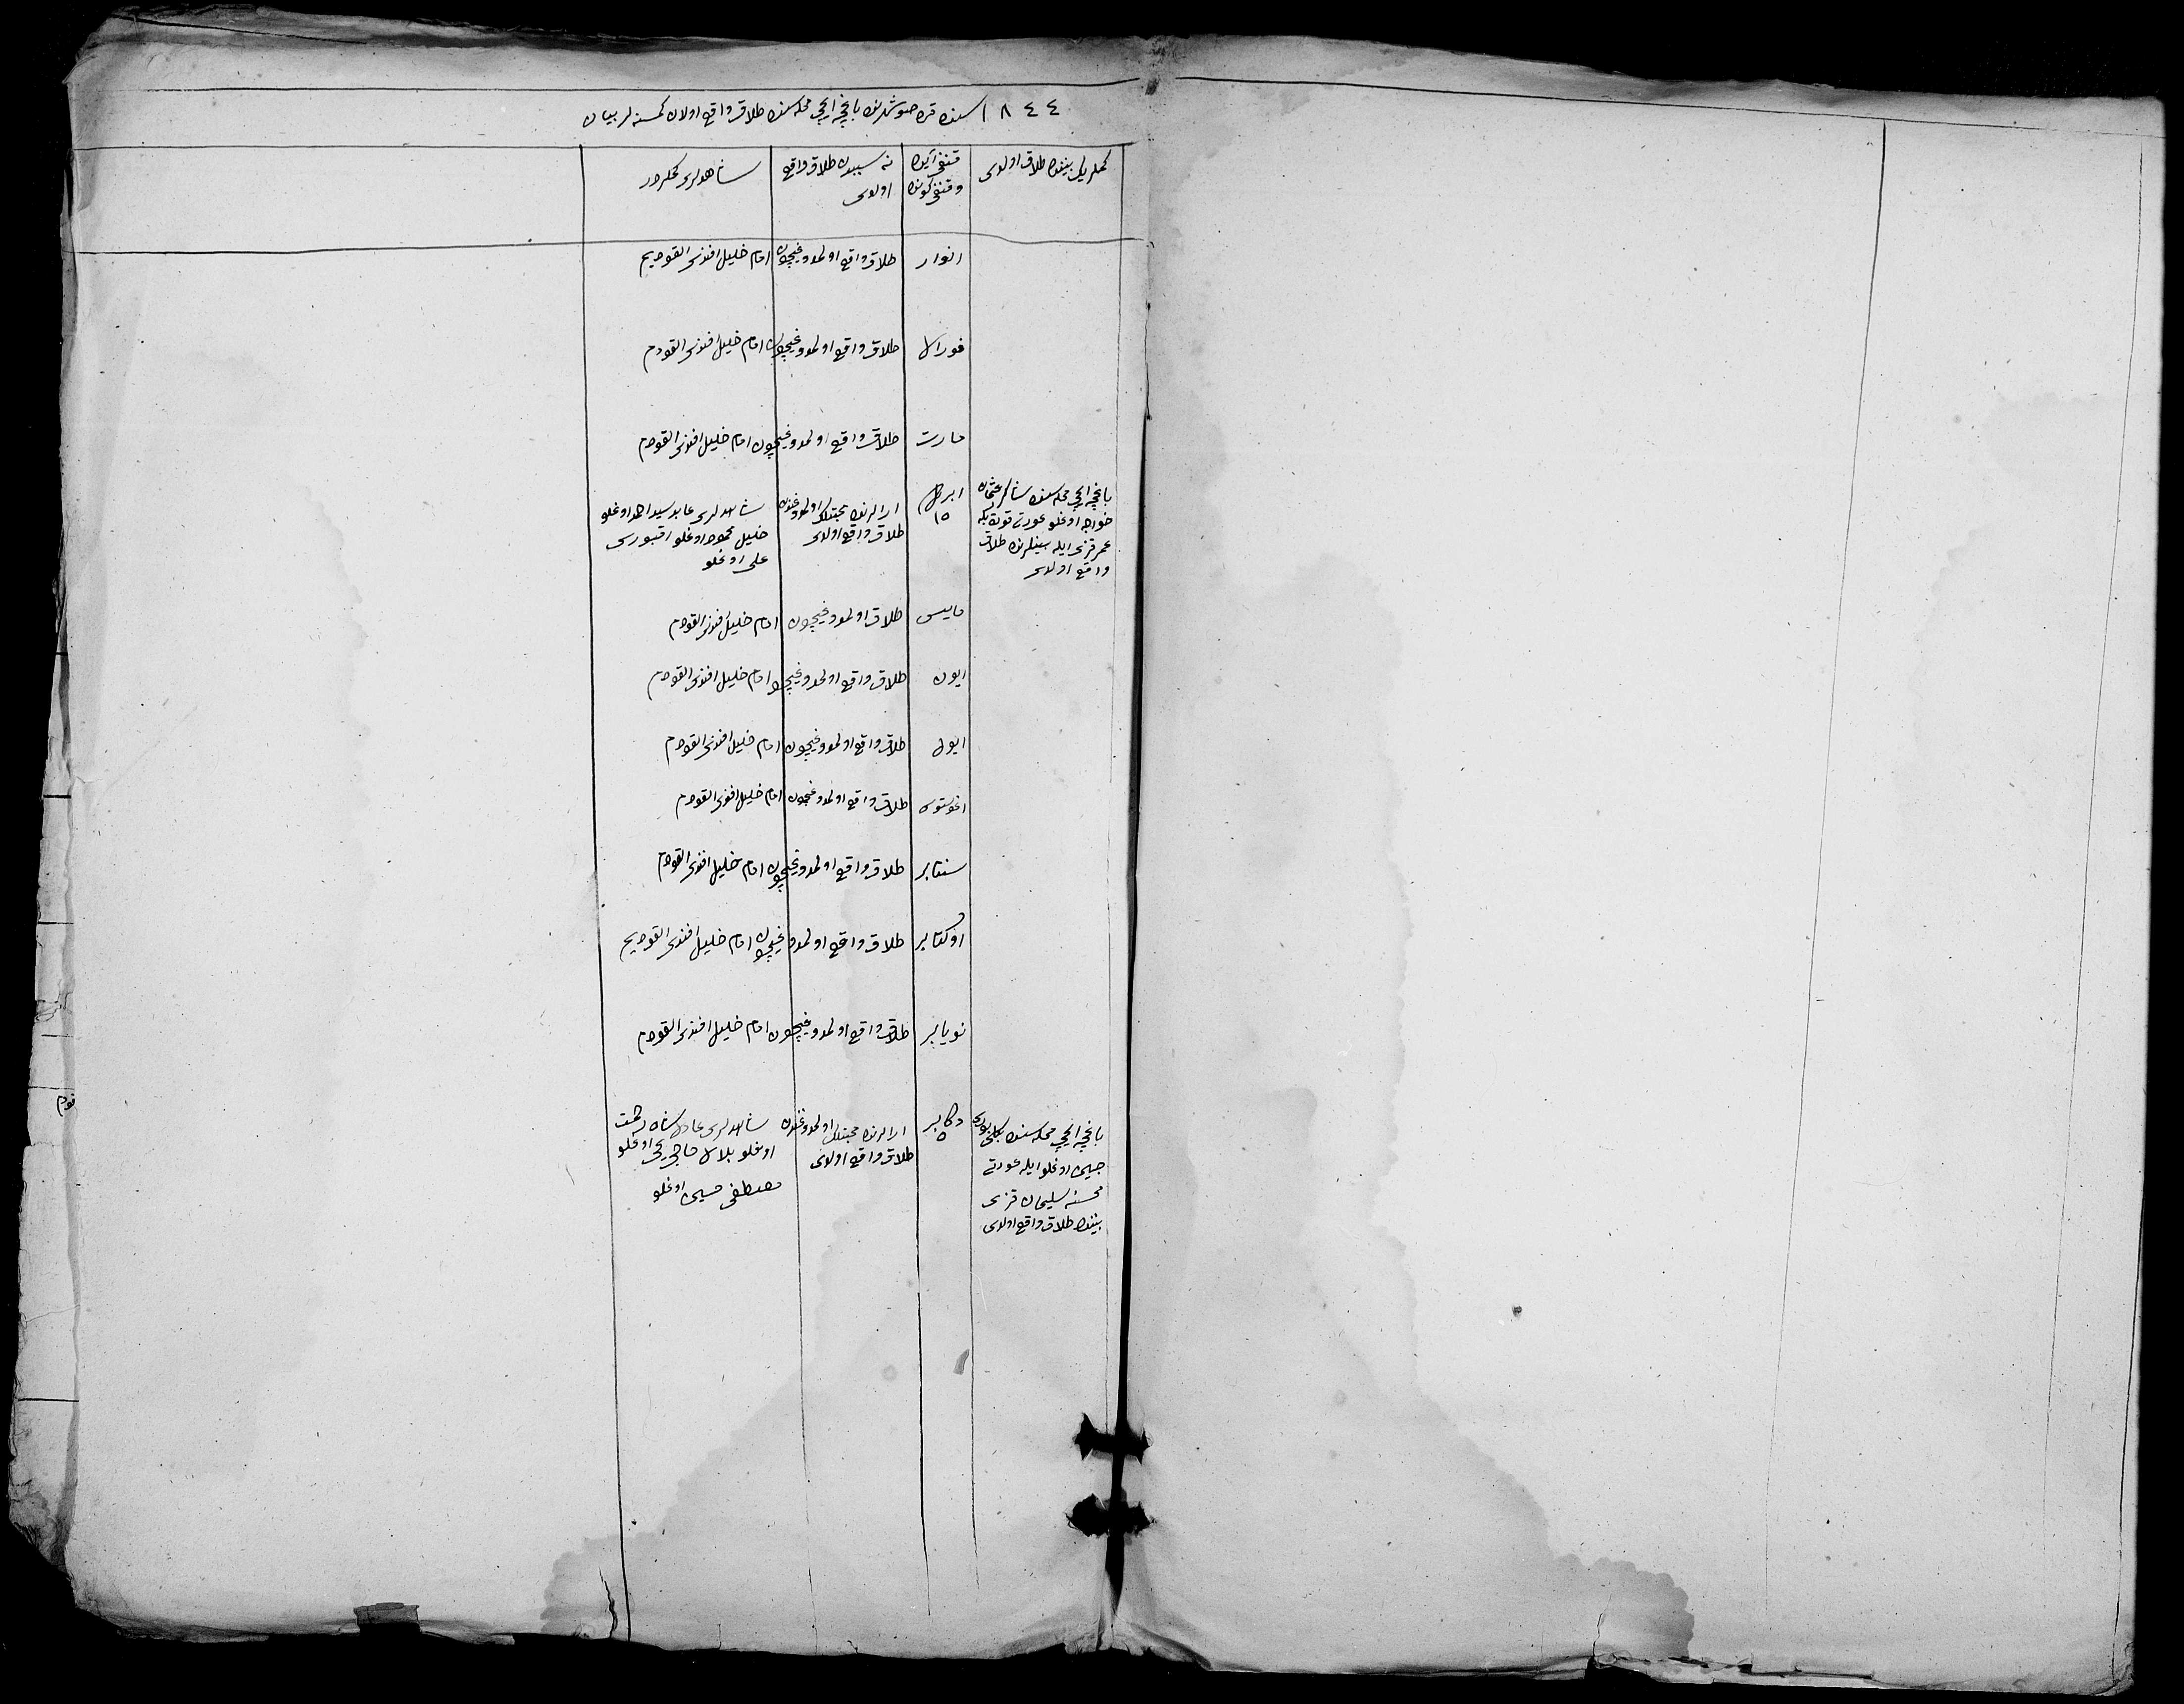 ١٨٤٤ سنه قره صو شهرنده باغچه ایچی محله سنده طلاق واقع اولان کمسنه لر بیان
کملر یله بیننده طلاق اولدی
قنغی آیده
و قنغی کونده
نه سببدن طلاق واقع
اولدی
شاهدلری کملردر
انوار
طلاق واقع اولمدوغیچون
امام خلیل افندی القودیم
فورال
طلاق واقع اولمدوغیچون
امام خلیل افندی القودم
مارت
طلاق واقع اولمدوغیچون
امام خلیل افندی القودم
باغچه ایچی محله سنده عثمان
خواجه اوغلو عورتی
عمر قزی ایله بینلرنده طلاق
واقع اولدی
ابریل
١٥
ارالرنده محبتلک اولمدوغندن
طلاق واقع اولدی
شاهدلری عابد سید احمد اوغلو
خلیل محمود اوغلو
علی اوغلو
مایس
طلاق اولمدوغیچون
امام خلیل افندی القودم
ایون
طلاق واقع اولمدوغیچون
امام خلیل افندی القودم
ایول
طلاق واقع اولمدوغیچون
امام خلیل افندی القودم
اغوستوس
طلاق واقع اولمدوغیچون
امام خلیل افندی القودم
سنتابر
طلاق واقع اولمدوغیچون
امام خلیل افندی القودم
اوکتابر
طلاق واقع اولمدوغیچون
امام خلیل افندی القودیم
نویابر
طلاق واقع اولمدوغیچون
امام خلیل افندی القودم
باغچه ایچی محله سنده
حسین اوغلو ایله عورتی
محسنه سلیمان قزی
بیننده طلاق واقع اولدی
دکابر
٥
ارالرنده محبتلک اولمدوغندن
طلاق واقع اولدی
شاهدلری عادل شاه
اوغلو حاجی یحیی اوغلو
مصطفی حسین اوغلو
قودم